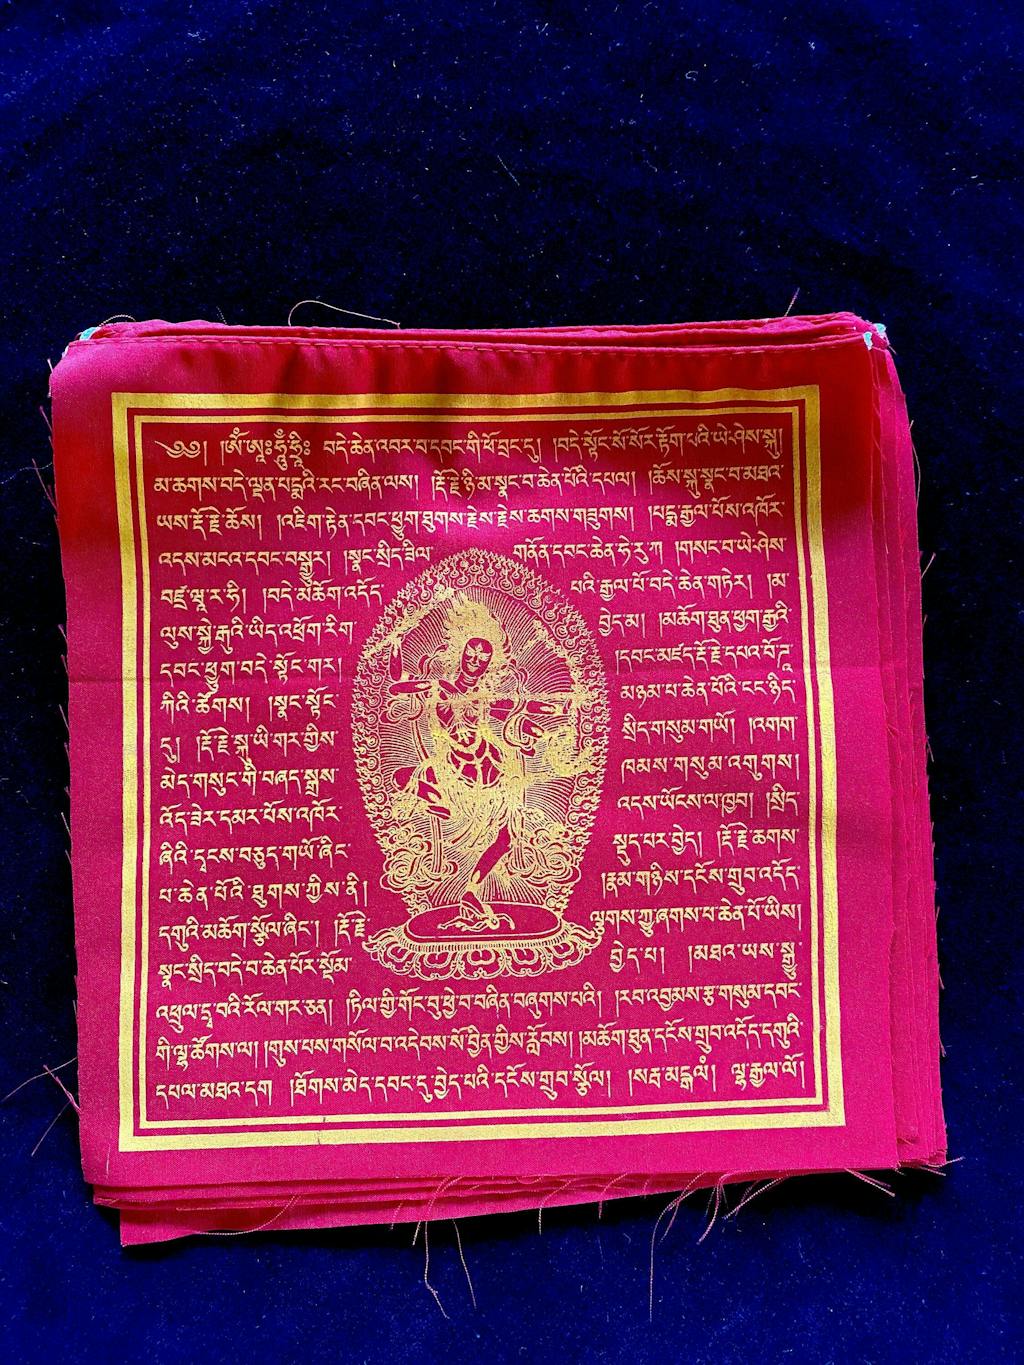 ༄༅། །ༀ་ཨཱཿཧཱུྃ་ཧྲཱིཿ བདེ་ཆེན་འབར་བ་དབང་གི་ཕོ་བྲང་དུ། །བདེ་སྟོང་སོ་སོར་རྟོག་པའི་ཡེ་ཤེས་སྐུ།
མ་ཆགས་བདེ་ལྡན་པདྨའི་རང་བཞིན་ལས། །རྡོ་རྗེ་ཉི་མ་སྣང་བ་ཆེན་པོའི་དཔལ། །ཆོས་སྐུ་སྣང་བ་མཐའ་
ཡས་རྡོ་རྗེ་ཆོས། །འཇིག་རྟེན་དབང་ཕྱུག་ཐུགས་རྗེས་རྗེས་ཆགས་གཟུགས། །པདྨ་རྒྱལ་པོས་འཁོར་
འདས་མངའ་དབང་བསྒྱུར། །སྣང་སྲིད་ཟིལ་གནོན་དབང་ཆེན་ཧེ་རུ་ཀ །གསང་བ་ཡེ་ཤེས་
བཛྲ་ཝཱ་ར་ཧི། །བདེ་མཆོག་འདོད་པའི་རྒྱལ་པོ་བདེ་ཆེན་གཏེར། །མ་
ལུས་སྐྱེ་རྒུའི་ཡིད་འཕྲོག་རིག་བྱེད་མ། །མཆོག་ཐུན་ཕྱག་རྒྱའི་
དབང་ཕྱུག་བདེ་སྟོང་གར། །དབང་མཛད་རྡོ་རྗེ་དཔའ་བོ་ཌཱ་
ཀིའི་ཚོགས། །སྣང་སྟོང་མཉམ་པ་ཆེན་པོའི་ངང་ཉིད་
དུ། །རྡོ་རྗེ་སྐུ་ཡི་གར་གྱིས་སྲིད་གསུམ་གཡོ། །འགག་
མེད་གསུང་གི་བཞད་སྒྲས་ཁམས་གསུམ་འགུགས།
འོད་ཟེར་དམར་པོས་འཁོར་འདས་ཡོངས་ལ་ཁྱབ། །སྲིད་
ཞིའི་དྭངས་བཅུད་གཡོ་ཞིང་སྡུད་པར་བྱེད། །རྡོ་རྗེ་ཆགས་
པ་ཆེན་པོའི་ཐུགས་ཀྱིས་ནི། །རྣམ་གཉིས་དངོས་གྲུབ་འདོད་
དགུའི་མཆོག་སྩོལ་ཞིང་། །རྡོ་རྗེ་ལྕགས་ཀྱུ་ཞགས་པ་ཆེན་པོ་ཡིས།
སྣང་སྲིད་བདེ་བ་ཆེན་པོར་སྡོམ་བྱེད་པ། །མཐའ་ཡས་སྒྱུ་
འཕྲུལ་དྲྭ་བའི་རོལ་གར་ཅན། །ཏིལ་གྱི་གོང་བུ་ཕྱེ་བ་བཞིན་བཞུགས་པའི། །རབ་འབྱམས་རྩ་གསུམ་དབང་
གི་ལྷ་ཚོགས་ལ། །གུས་པས་གསོལ་བ་འདེབས་སོ་བྱིན་གྱིས་རློབས། །མཆོག་ཐུན་དངོས་གྲུབ་འདོད་དགུའི་
དཔལ་མཐའ་དག །ཐོགས་མེད་དབང་དུ་བྱེད་པའི་དངོས་གྲུབ་སྩོལ། །སརྦ་མངྒ་ལཾ། ལྷ་རྒྱལ་ལོ།